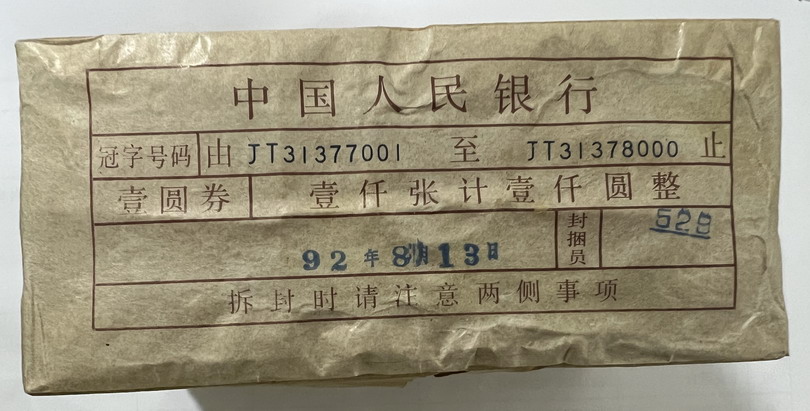 中国人民银行
冠字号码 由 JT31377001 至 JT31378000 止
壹圆券 壹仟张计壹仟圆整
92年8月13日 封捆员 528
拆封时请注意两侧事项